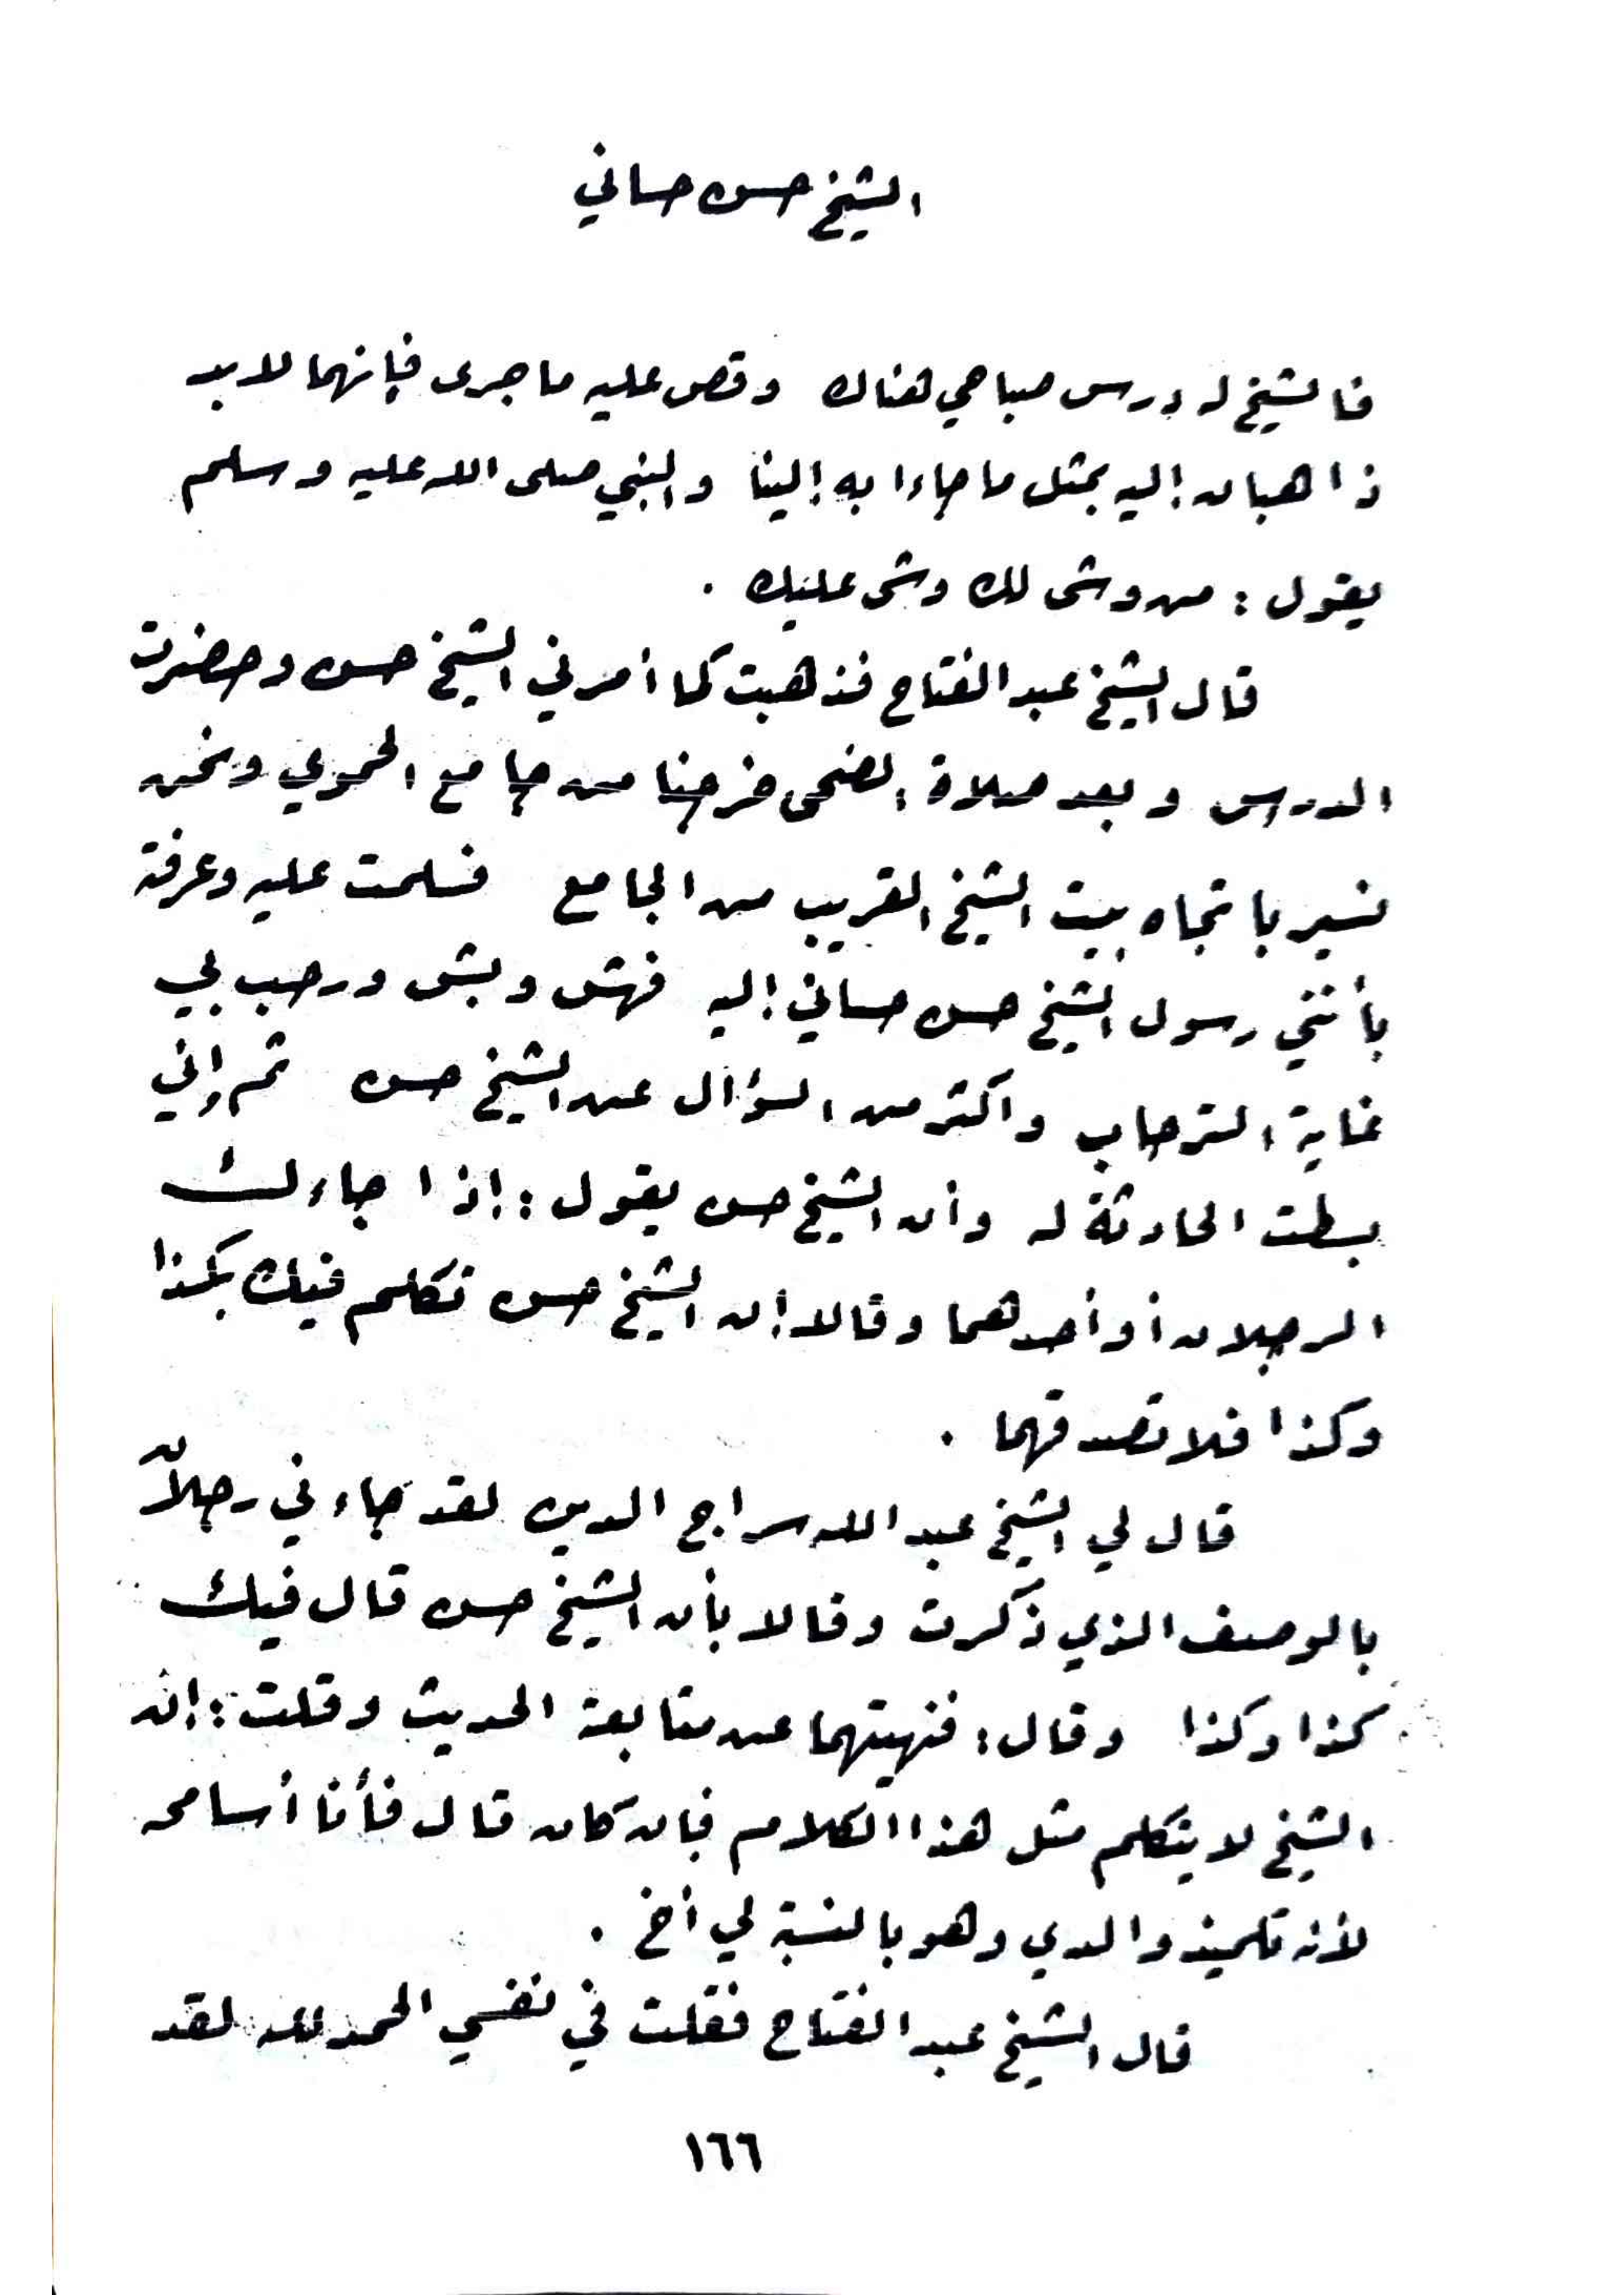 الشيخ حسن حساني
فالشيخ له درس صباحي هناك وقص عليه ما جرى فإنهما لابد
ذاهبان إليه بمثل ما جاءا به إلينا والنبي صلى الله عليه وسلم
يقول : من وشى لك وشى عليك .
قال الشيخ عبد الفتاح فذهبت كما أمرني الشيخ حسن وحضرت
الدرس وبعد صلاة الضحى خرجنا من جامع الحموي ونحن
نسير باتجاه بيت الشيخ القريب من الجامع فسلمت عليه وعرفته
بأنني رسول الشيخ حسن حساني إليه فهش وبش ورحب بي
غاية الترحاب وأكثر من السؤال عن الشيخ حسن ثم وإني
بسطت الحادثة له وأن الشيخ حسن يقول : إذا جاءك
الرجلان أو أحدهما وقالا إن الشيخ حسن تكلم فيك بكذا
وكذا فلا تصدقهما .
قال لي الشيخ عبد الله سراج الدين لقد جاءني رجلان
بالوصف الذي ذكرت وقالا بأن الشيخ حسن قال فيك
كذا وكذا وقال : فنهيتهما عن متابعة الحديث وقلت : إن
الشيخ لا يتكلم مثل هذا الكلام فإن كان قال فأنا أسامحه
لأنه تلميذ والدي وهو بالنسبة لي أخ .
قال الشيخ عبد الفتاح فقلت في نفسي الحمد لله لقد
١٦٦